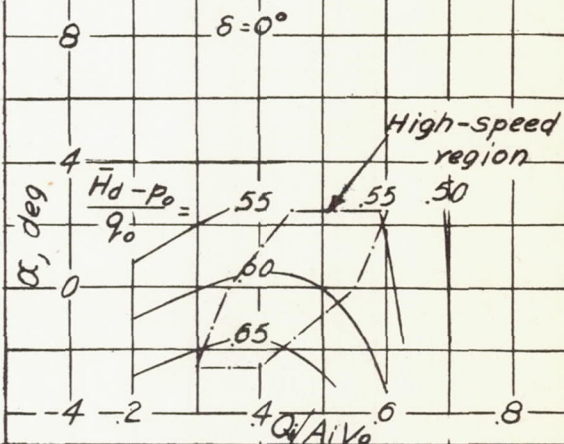 8
δ = 0°
High-speed
region
4
H̄d - p₀
q₀
=
.55
.55
.50
α, deg
.60
0
.65
-4
.2
.4
Qi/AiV₀
.6
.8